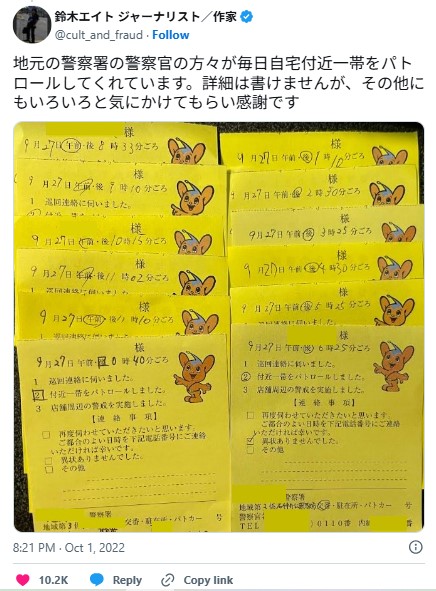 鈴木エイト ジャーナリスト／作家
@cult_and_fraud · Follow
地元の警察署の警察官の方々が毎日自宅付近一帯をパト
ロールしてくれています。詳細は書けませんが、その他に
もいろいろと気にかけてもらい感謝です
様
9月27日午前・後8時33分ごろ
様
9月27日午前・後9時10分ごろ
1 巡回連絡に伺いました。
様
9月27日午前・後10時15分ごろ
様
9月27日午前・後11時02分ごろ
様
様
9月27日午前・後0時40分ごろ
1 巡回連絡に伺いました。
2 付近一帯をパトロールしました。
3 店舗周辺の警戒を実施しました。
【連絡事項】
□ 再度伺わせていただきたいと思います。
ご都合のよい日時を下記電話番号にご連絡
いただければ幸いです。
□ 異状ありませんでした。
□ その他
警察署
交番・駐在所・パトカー 号
様
9月27日午前・後1時10分ごろ
様
9月27日午前・後2時30分ごろ
様
9月27日午前・後3時25分ごろ
様
9月27日午前・後4時30分ごろ
様
様
9月27日午前・後6時25分ごろ
1 巡回連絡に伺いました。
2 付近一帯をパトロールしました。
3 店舗周辺の警戒を実施しました。
【連絡事項】
□ 再度伺わせていただきたいと思います。
ご都合のよい日時を下記電話番号にご連絡
いただければ幸いです。
☑ 異状ありませんでした。
□ その他
警察署
駐在所・パトカー 号
警察官
TEL
0110番
8:21 PM · Oct 1, 2022
10.2K
Reply
Copy link